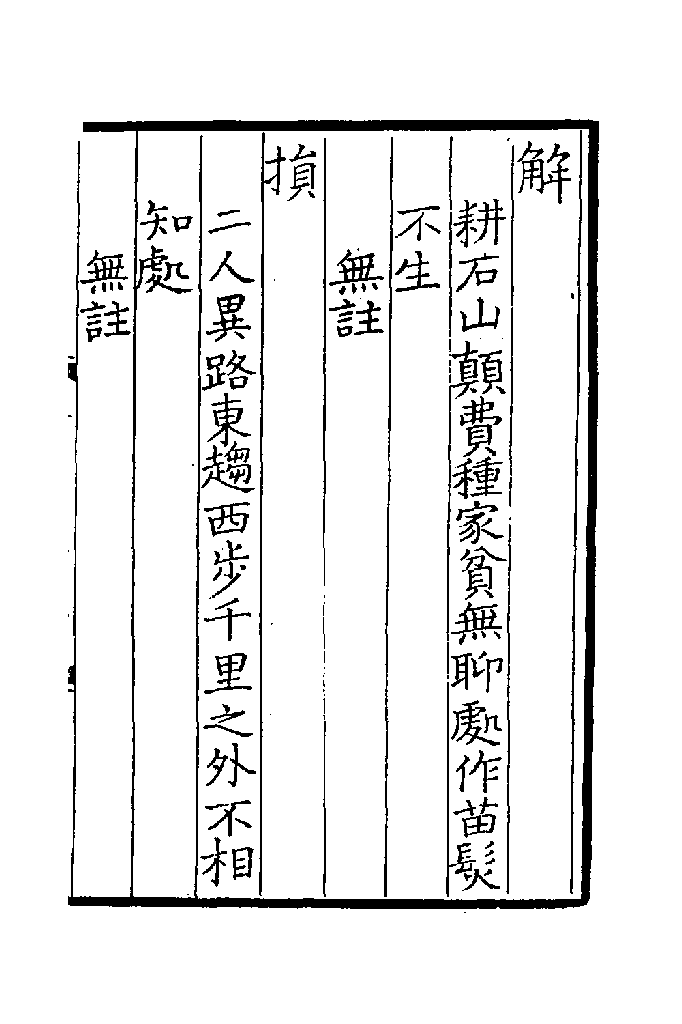 解
耕石山顛費種家貧無聊處作苗髮
不生
無註
損
二人異路東趨西步千里之外不相
知處
無註